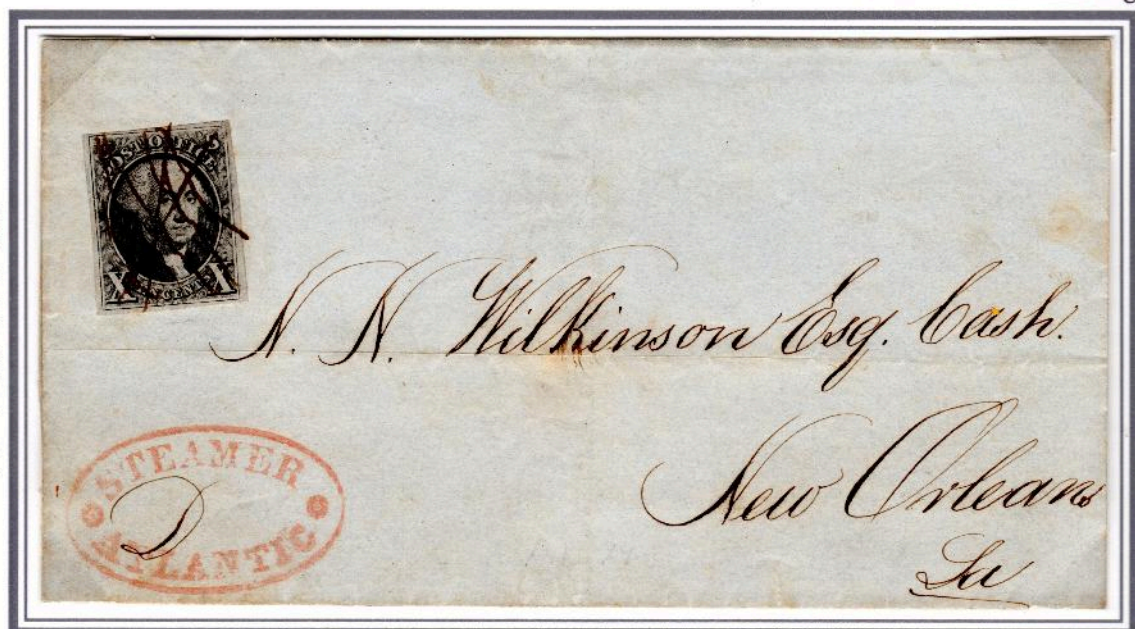 POST OFFICE
X TEN CENTS X
N. N. Wilkinson Esq. Cash.
New Orleans
La
STEAMER
D
ATLANTIC